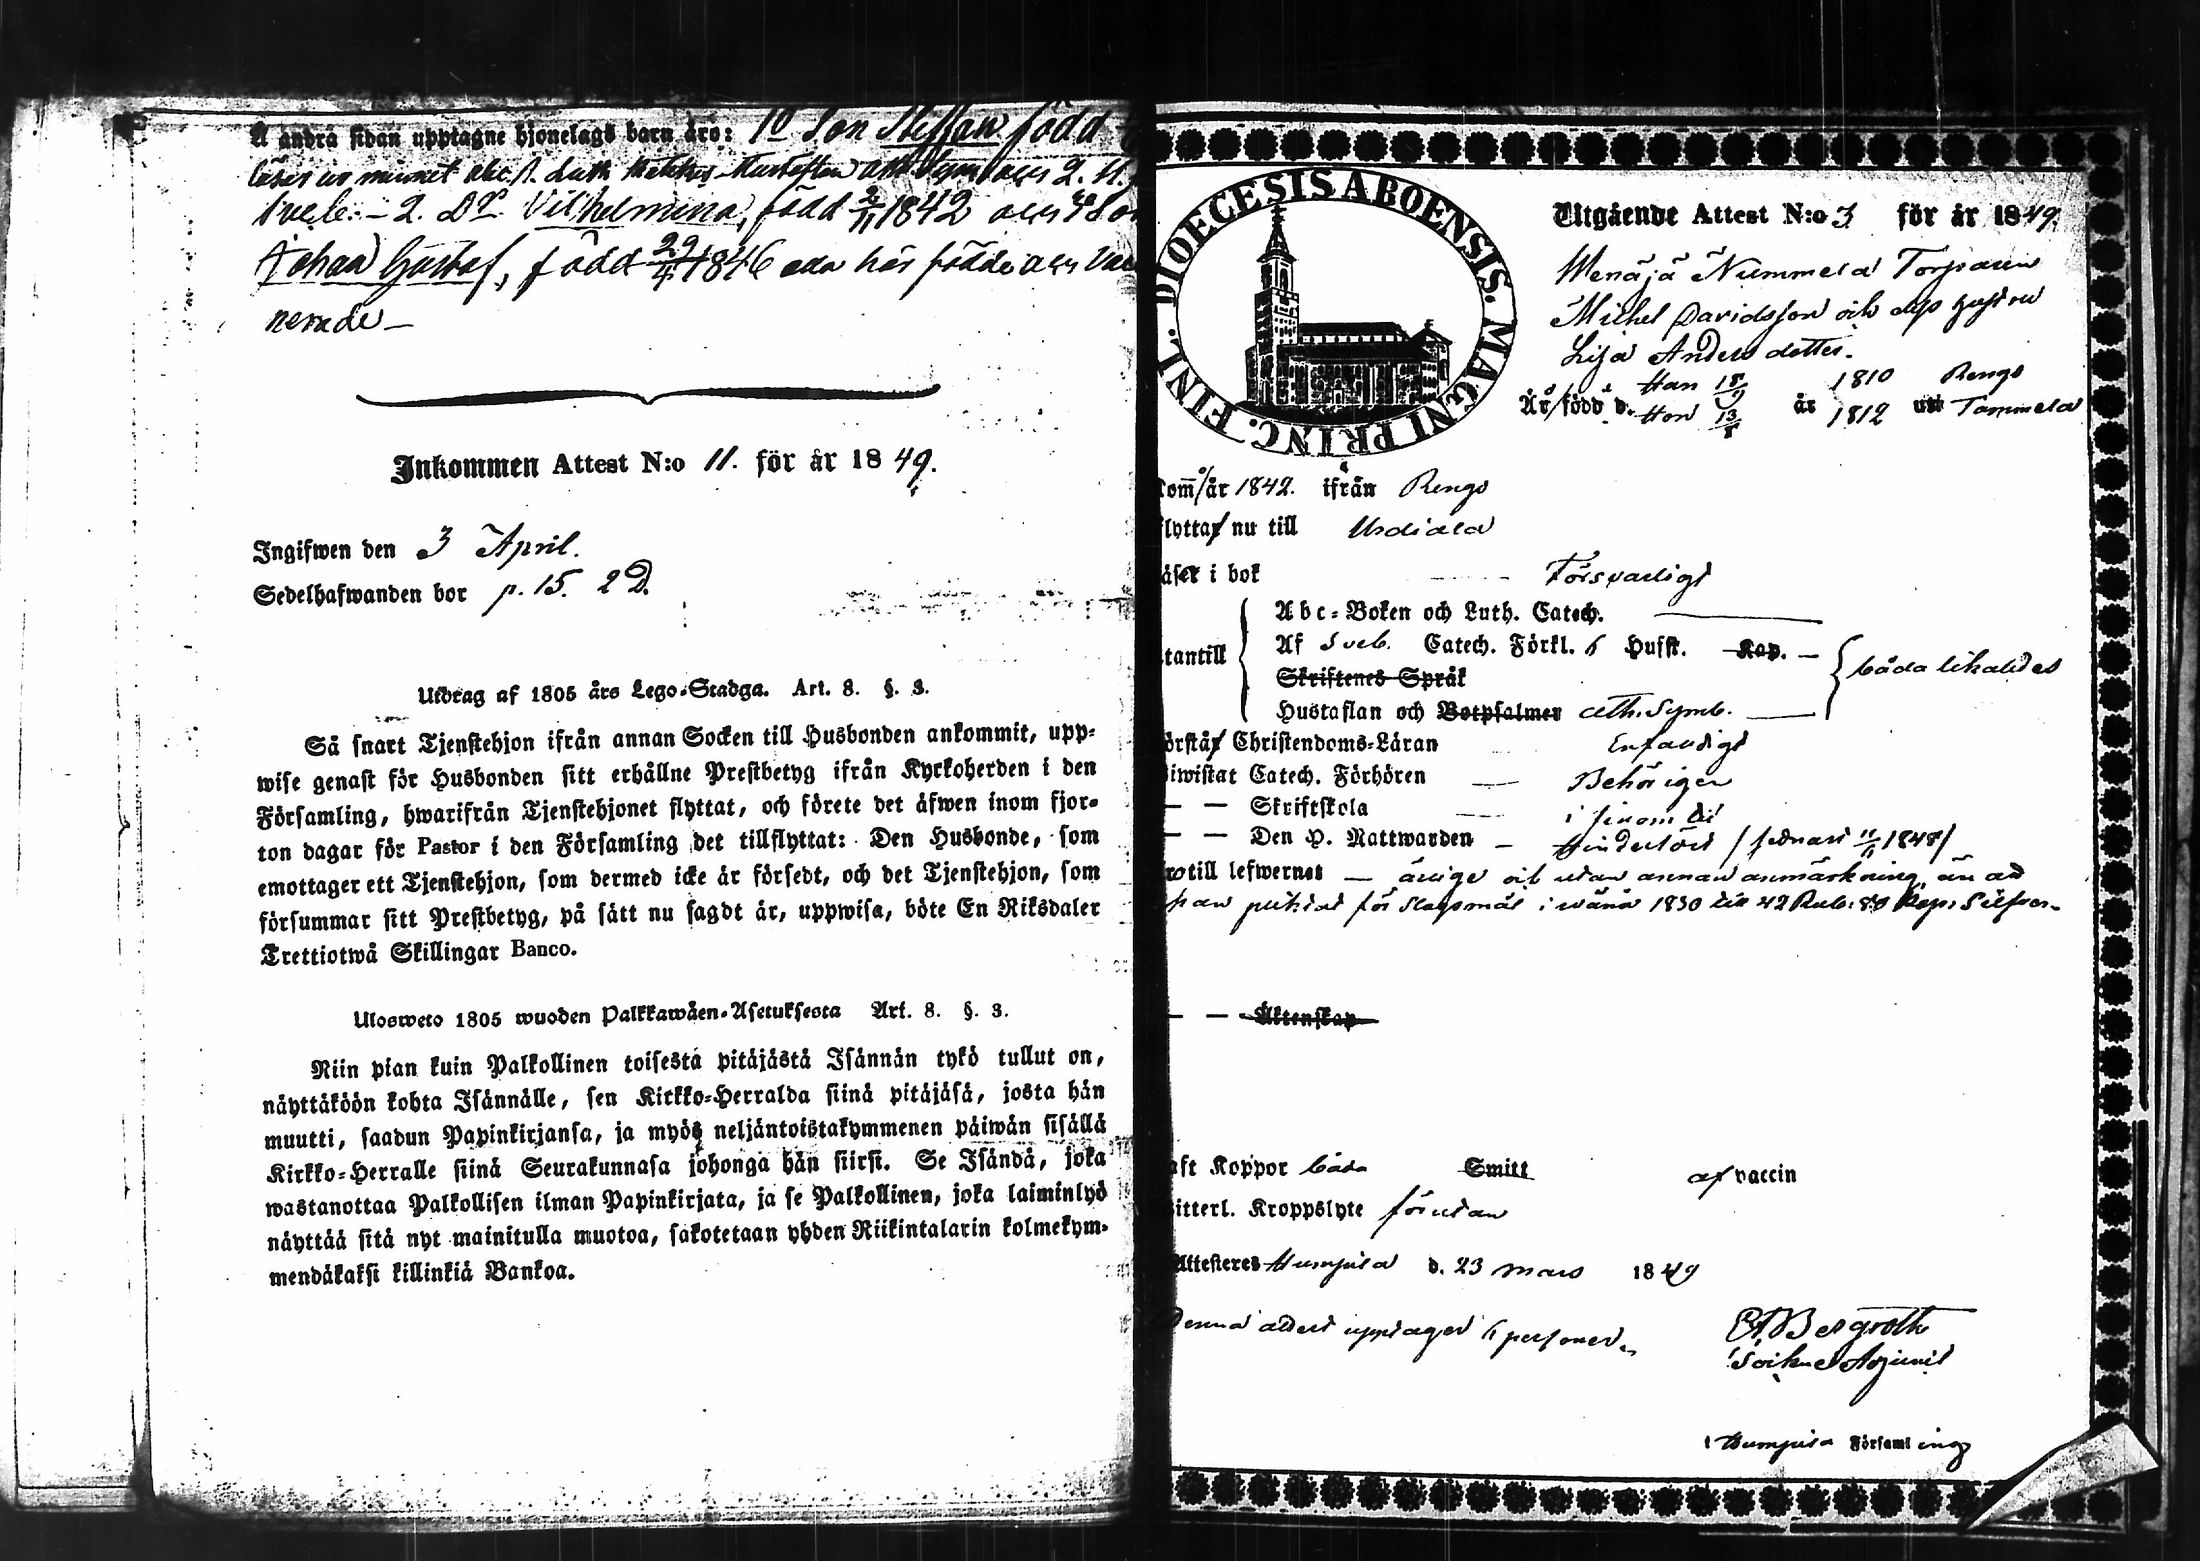 Å andra sidan upptagne hjonelags barn äro: 1o Son Steffan född
läser ur minnet abc. B. Luth. och 2.
Sveb. - 2. Dr. Vilhelmina, född 2/11 1842 och 3o Son
Johan Gustaf, född 29/4 1846 här födde och vacci
nerade -
Inkommen Attest N:o 11. för år 1849.
Ingifwen den 3 April.
Sedelhafwanden bor p. 15. 2 D.
Utdrag af 1805 års Lego-Stadga. Art. 8. §. 3.
Så snart Tjenstehjon ifrån annan Socken till Husbonden ankommit, upp-
wise genast för Husbonden sitt erhållne Prestbetyg ifrån Kyrkoherden i den
Församling, hwarifrån Tjenstehjonet flyttat, och förete det äfwen inom fjor-
ton dagar för Pastor i den Församling det tillflyttat: Den Husbonde, som
emottager ett Tjenstehjon, som dermed icke är försedt, och det Tjenstehjon, som
försummar sitt Prestbetyg, på sätt nu sagdt är, uppwisa, böte En Riksdaler
Trettiotwå Skillingar Banco.
Ulosweto 1805 wuoden Palkkawäen-Asetuksesta Art. 8. §. 3.
Niin pian kuin Palkollinen toisesta pitäjästä Isännän tykö tullut on,
näyttäköön kohta Isännälle, sen Kirkko-Herralda siinä pitäjäsä, josta hän
muutti, saadun Papinkirjansa, ja myös neljäntoistakymmenen päiwän sisällä
Kirkko-Herralle siinä Seurakunnasa johonga hän siirsi. Se Isändä, joka
wastanottaa Palkollisen ilman Papinkirjata, ja se Palkollinen, joka laiminlyö
näyttää sitä nyt mainitulla muotoa, sakotetaan yhden Riikintalarin kolmekym-
mendäkaksi killinkiä Bankoa.
DIOECESIS ABOENSIS. MAGNI PRINC. FINL.
Utgående Attest N:o 3 för år 1849.
Menäjä Nummela Torparen
Michel Davidsson och dess hustru
Lisa Anders dotter.
Han 18/9 1810 Rengo
Är/född d. Hon 13/5 år 1812 uti Tammela
Kom/år 1842. ifrån Rengo
flytta/ nu till Urdiala
läser i bok Försvarligt
Abc-Boken och Luth. Catech.
utantill Af Sveb. Catech. Förkl. 6 Hufst. Kap. båda likaledes
Skriftenes Språk
Hustaflan och Botpsalmer Ath. Symb.
förstår Christendoms-Läran Enfaldigt
biwistat Catech. Förhören Behörigen
— — Skriftskola i sinom tid
— — Den H. Nattwarden Hindertöst / sednast 11/11 1848/
till lefwernet ärlige och utan annan anmärkning än at
han pliktat för slagsmål 1830 42 Rub: 80 Kop: Silfver.
— — Äktenskap
haft Koppor båda Smitt af vaccin
Litterl. Kroppslyte förutan
Attesteres Humpila d. 23 Mars 1849
Denna attest upptager 5 personer.
Bergroth
Sockne Adjunct
i Humpila Församling